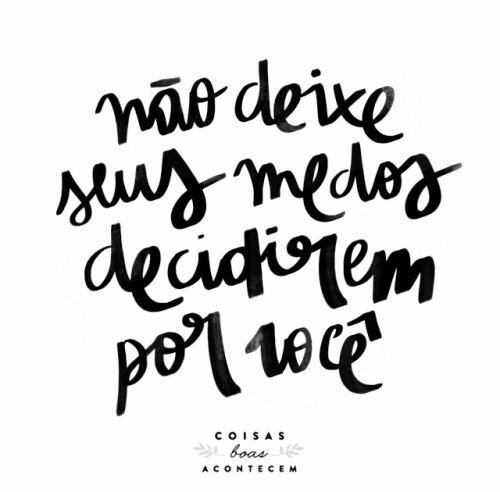 não deixe
seus medos
decidirem
por você
COISAS
boas
ACONTECEM